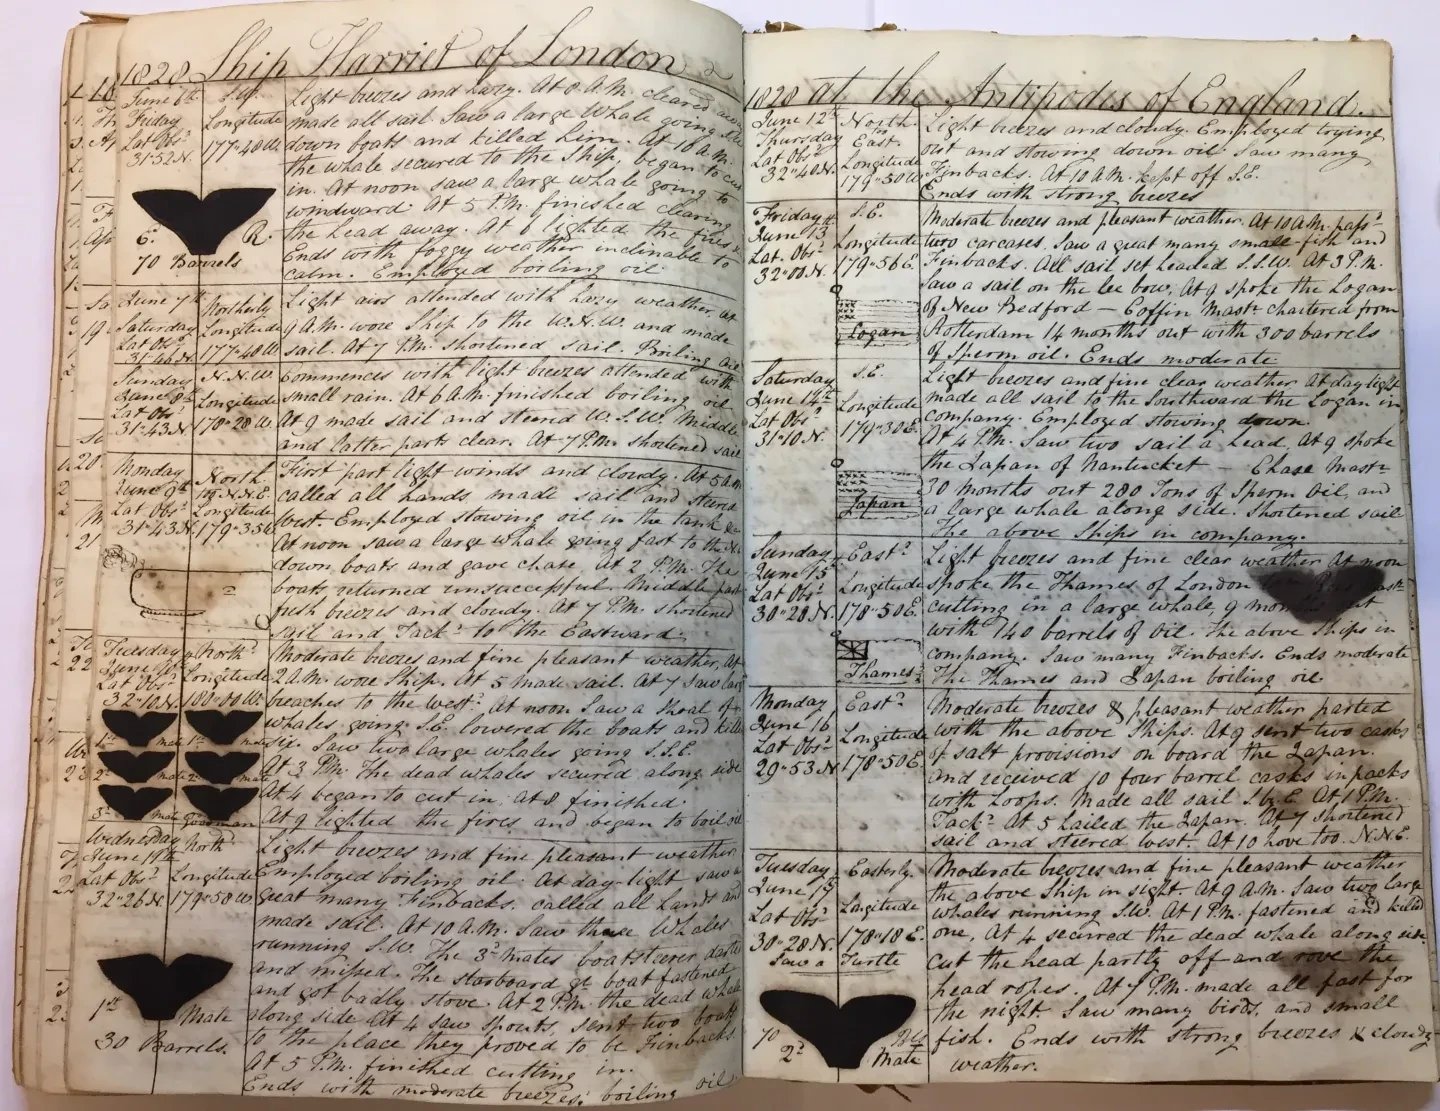 1828 Ship Harriet of London
June 6th S.W.
Friday Longitude
Lat Obsd 177"40W
31"52N
E. R.
70 Barrels
Light breezes and hazy. At 8 A.M. cleared
made all sail Saw a large Whale going
down boats and killed him. At 10 A.M.
the whale secured to the Ship, began to cut
in. At noon saw a large whale going to
windward. At 5 P.M. finished clearing
the head away. At 6 lighted the fires &
Ends with foggy weather inclinable to
calm. Employed boiling oil.
June 7th Northerly
Saturday Longitude
Lat Obsd 177"40W
31"46N
Light airs attended with hazy weather. At
9 A.M. wore Ship to the W.N.W. and made
sail. At 7 P.M. Shortened sail. Boiling
Sunday N.N.W.
June 8th Longitude
Lat Obsd 178"28W
31"43N
Commences with light breezes attended with
small rain. At 6 A.M. finished boiling oil
At 9 made sail and steered W.S.W. Middle
and latter parts clear. At 7 P.M. shortened sail
Monday North
June 9th to N.N.E.
Lat Obsd Longitude
31"43N 179"35
First part light winds and cloudy. At 5 A.M.
called all hands made sail and steered
West. Employed stowing oil in the tank &c
At noon saw a large whale going fast to the
down boats and gave chase. At 2 P.M. The
boats returned unsuccessful. Middle part
fresh breezes and cloudy. At 7 P.M. shortened
sail and Tackd to the Eastward.
Tuesday North
June 10th Longitude
Lat Obsd 180"00W
32"10N
1st mate 1st mate
2d mate 2d mate
3d mate
Moderate breezes and fine pleasant weather, At
2 A.M. wore Ship. At 5 Made sail. At 7 Saw
breaches to the west. At noon Saw a Shoal of
whales going S.E. lowered the boats and
six. Saw two large whales going S.S.E.
At 3 P.M. The dead whales secured along side
At 4 began to cut in. At 8 finished
At 9 lighted the fires and began to boil oil
Wednesday North
June 11th
Lat Obsd Longitude
32"26N 179"50W
1st Mate
30 Barrels.
Light breezes and fine pleasant weather
Employed boiling oil. At day-light saw a
great many Finbacks. called all hands and
made sail. At 10 A.M. Saw three Whales
running S.W. The 3d mates boatsteerer darted
and missed. The starboard qt boat fastened
and got badly stove. At 2 P.M. the dead whale
along side At 4 saw spouts, sent two boats
to the place they proved to be Finbacks.
At 5 P.M. finished cutting in.
Ends with moderate breezes. boiling oil
1828 at the Antipodes of England.
June 12th North
Thursday East.
Lat Obsd Longitude
32"40N. 179"50W
Light breezes and cloudy. Employed trying
out and stowing down oil. Saw many
Finbacks. At 10 A.M. kept off S.E.
Ends with strong breezes
Friday S.E.
June 13 Longitude
Lat. Obsd 179"56E.
32"00N.
Logan
Moderate breezes and pleasant weather. At 10 A.M. passd
two carcases. Saw a great many small-fish and
Finbacks. All sail set headed S.S.W. At 3 P.M.
Saw a sail on the lee bow. At 9 spoke the Logan
of New Bedford — Coffin Mastr chartered from
Rotterdam 14 months out with 300 barrels
of Sperm oil. Ends moderate.
Saturday S.E.
June 14th Longitude
Lat Obsd 179"30E.
31"10N.
Japan
Light breezes and fine clear weather. At day light
made all sail to the Southward the Logan in
company. Employed stowing down
At 4 P.M. Saw two sail a head. At 9 spoke
the Japan of Nantucket — Chase Mastr
30 months out 280 Tons of Sperm Oil, and
a large whale along side. Shortened sail
The above Ships in company.
Sunday Eastd
June 15th Longitude
Lat Obsd 178"50E.
30"28N.
Thames
Light breezes and fine clear weather At noon
spoke the Thames of London
cutting in a large whale, 9 months out
with 140 barrels of Oil. The above Ships in
company. Saw many Finbacks. Ends moderate
The Thames and Japan boiling oil
Monday Eastd
June 16 Longitude
Lat Obsd 178"50E.
29"53N
Moderate breezes & pleasant weather parted
with the above Ships. At 9 sent two casks
of salt provisions on board the Japan.
and received 10 four barrel casks in packs
with hoops. Made all sail S.b.E. At 1 P.M.
Tackd At 5 hailed the Japan. At 7 shortened
sail and steered west. At 10 hove too. N.N.E.
Tuesday Easterly
June 17th Longitude
Lat Obsd 178"18E.
30"28N.
Saw a Turtle
70
2d Mate
Moderate breezes and fine pleasant weather
the above Ship in sight. At 9 A.M. Saw two large
whales running S.W. At 1 P.M. fastened and killed
one, At 4 secured the dead whale along side
cut the head partly off and rove the
head ropes. At 7 P.M. made all fast for
the night. Saw many birds, and small
fish. Ends with strong breezes & cloudy
weather.